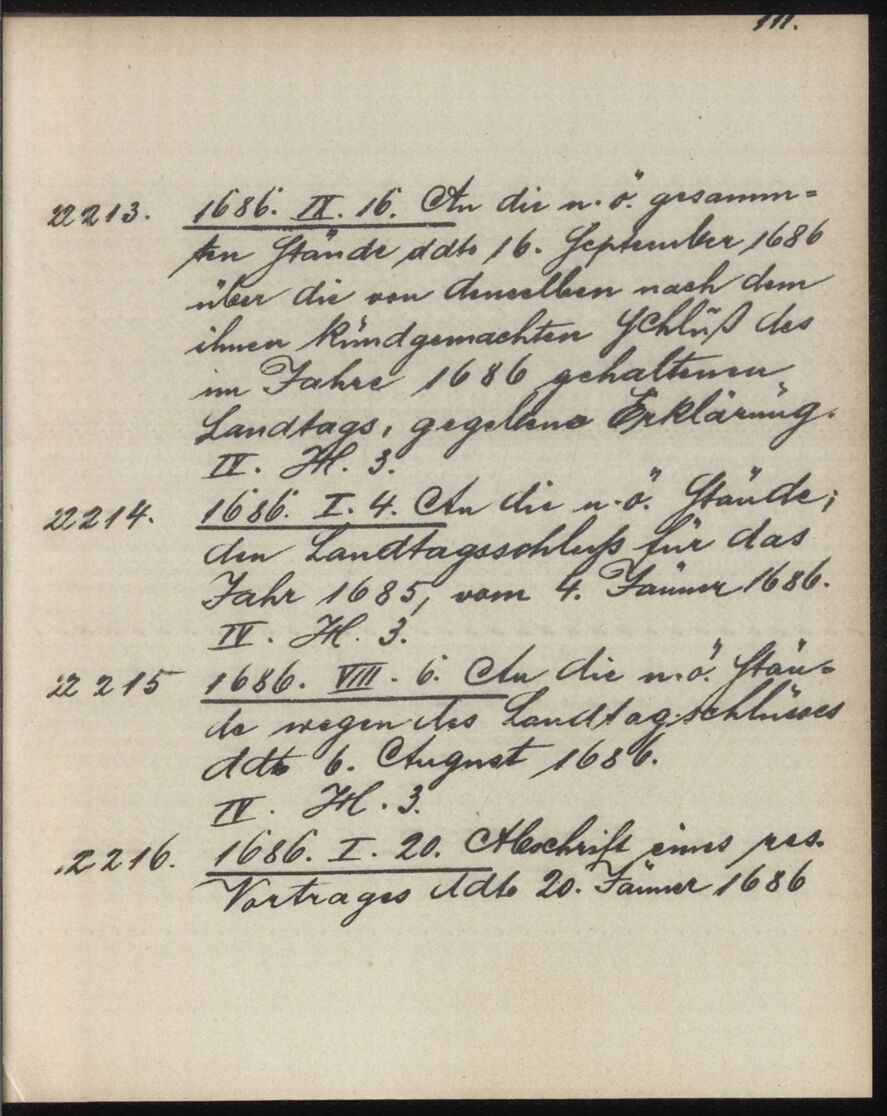 111.
22213. 1686. IX. 16. An die n. ö. gesamm=
ten Stände ddto 16. September 1686
über die von denselben nach dem
ihnen kundgemachten Schluß des
im Jahre 1686 gehaltenen
Landtags, gegebene Erklärung.
IV. H. 3.
22214. 1686. I. 4. An die n. ö. Stände;
den Landtagsschluß für das
Jahr 1685, vom 4. Jänner 1686.
IV. H. 3.
22215 1686. VIII. 6. An die n. ö. Stän=
de wegen des Landtagschlusses
ddto 6. August 1686.
IV. H. 3.
22216. 1686. I. 20. Abschrift eines res.
Vortrages ddto 20. Jänner 1686